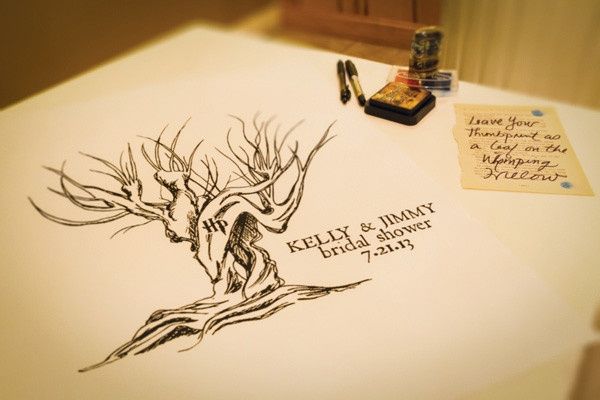 HP
KELLY & JIMMY
bridal shower
7.21.13
Leave Your
Thumbprint as
a leaf on the
Whomping
Willow